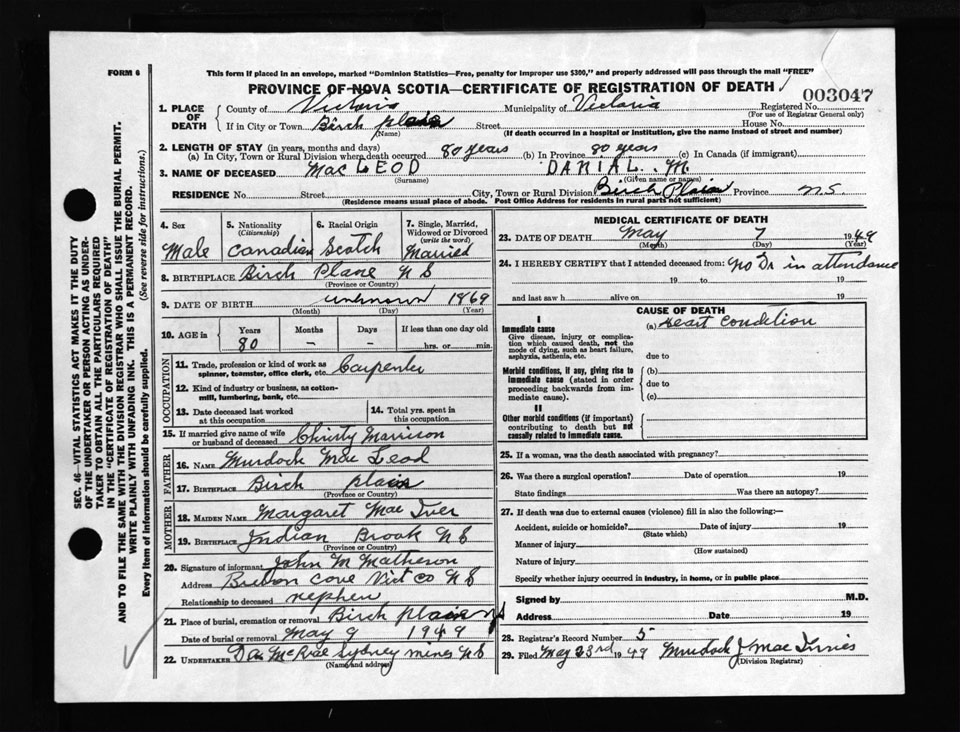 FORM 6
This form if placed in an envelope, marked "Dominion Statistics—Free, penalty for improper use $300," and properly addressed will pass through the mail "FREE"
PROVINCE OF NOVA SCOTIA—CERTIFICATE OF REGISTRATION OF DEATH
003047
1. PLACE OF DEATH
County of Victoria Municipality of Victoria Registered No.
(For use of Registrar General only)
If in City or Town Birch plain Street House No.
(Name) (If death occurred in a hospital or institution, give the name instead of street and number)
2. LENGTH OF STAY (in years, months and days)
(a) In City, Town or Rural Division where death occurred 80 years (b) In Province 80 years (c) In Canada (if immigrant)
3. NAME OF DECEASED MacLEOD DANIAL. M.
(Surname) (Given name or names)
RESIDENCE No. Street City, Town or Rural Division Birch Plain Province N.S.
(Residence means usual place of abode. Post Office Address for residents in rural parts not sufficient)
4. Sex Male
5. Nationality (Citizenship) Canadian
6. Racial Origin Scotch
7. Single, Married, Widowed or Divorced (write the word) Married
8. BIRTHPLACE Birch Plane N S
(Province or County)
9. DATE OF BIRTH unknown 1869
(Month) (Day) (Year)
10. AGE in Years Months Days If less than one day old
80 – – hrs. or min.
OCCUPATION
11. Trade, profession or kind of work as spinner, teamster, office clerk, etc. Carpenter
12. Kind of industry or business, as cotton-mill, lumbering, bank, etc.
13. Date deceased last worked at this occupation
14. Total yrs. spent in this occupation
15. If married give name of wife or husband of deceased Christy Morrison
FATHER
16. NAME Murdock Mac Leod
17. BIRTHPLACE Birch plain
(Province or Country)
MOTHER
18. MAIDEN NAME Margaret Mac Iver
19. BIRTHPLACE Indian Brook N S
(Province or Country)
20. Signature of informant John M Matheson
Address Breton Cove Vict Co N S
Relationship to deceased nephew
21. Place of burial, cremation or removal Birch plain NS
Date of burial or removal May 9 1949
22. UNDERTAKER Dan McRae Sydney mines N S
(Name and address)
MEDICAL CERTIFICATE OF DEATH
23. DATE OF DEATH May 7 1949
(Month) (Day) (Year)
24. I HEREBY CERTIFY that I attended deceased from: No Dr in attendance
19 to 19
and last saw h alive on 19
CAUSE OF DEATH
I
Immediate cause (a) Heart Condition
Give disease, injury or complication which caused death, not the mode of dying, such as heart failure, asphyxia, asthenia, etc.
due to
Morbid conditions, if any, giving rise to immediate cause (stated in order proceeding backwards from immediate cause).
(b)
due to
(c)
II
Other morbid conditions (if important) contributing to death but not causally related to immediate cause.
25. If a woman, was the death associated with pregnancy?
26. Was there a surgical operation? Date of operation 19
State findings Was there an autopsy?
27. If death was due to external causes (violence) fill in also the following:—
Accident, suicide or homicide? Date of injury 19
(State which)
Manner of injury
(How sustained)
Nature of injury
Specify whether injury occurred in industry, in home, or in public place
Signed by M.D.
Address Date 19
28. Registrar's Record Number 5
29. Filed May 23rd 1949 Murdock J Mac
(Division Registrar)
SEC. 46—VITAL STATISTICS ACT MAKES IT THE DUTY
OF THE UNDERTAKER OR PERSON ACTING AS UNDER-
TAKER TO OBTAIN ALL THE PARTICULARS REQUIRED
IN THE "CERTIFICATE OF REGISTRATION OF DEATH"
AND TO FILE THE SAME WITH THE DIVISION REGISTRAR WHO SHALL ISSUE THE BURIAL PERMIT.
WRITE PLAINLY WITH UNFADING INK. THIS IS A PERMANENT RECORD.
Every item of information should be carefully supplied. (See reverse side for instructions.)